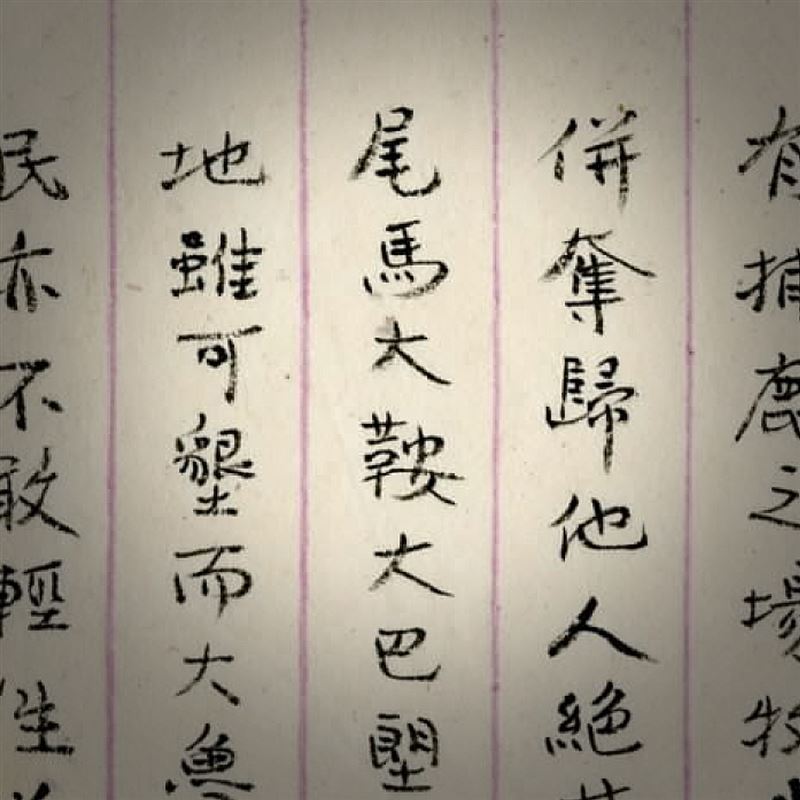 有捕鹿之場牧
併奪歸他人絕
尾馬大鞍大巴塱
地雖可墾而大魚
民亦不敢輕往